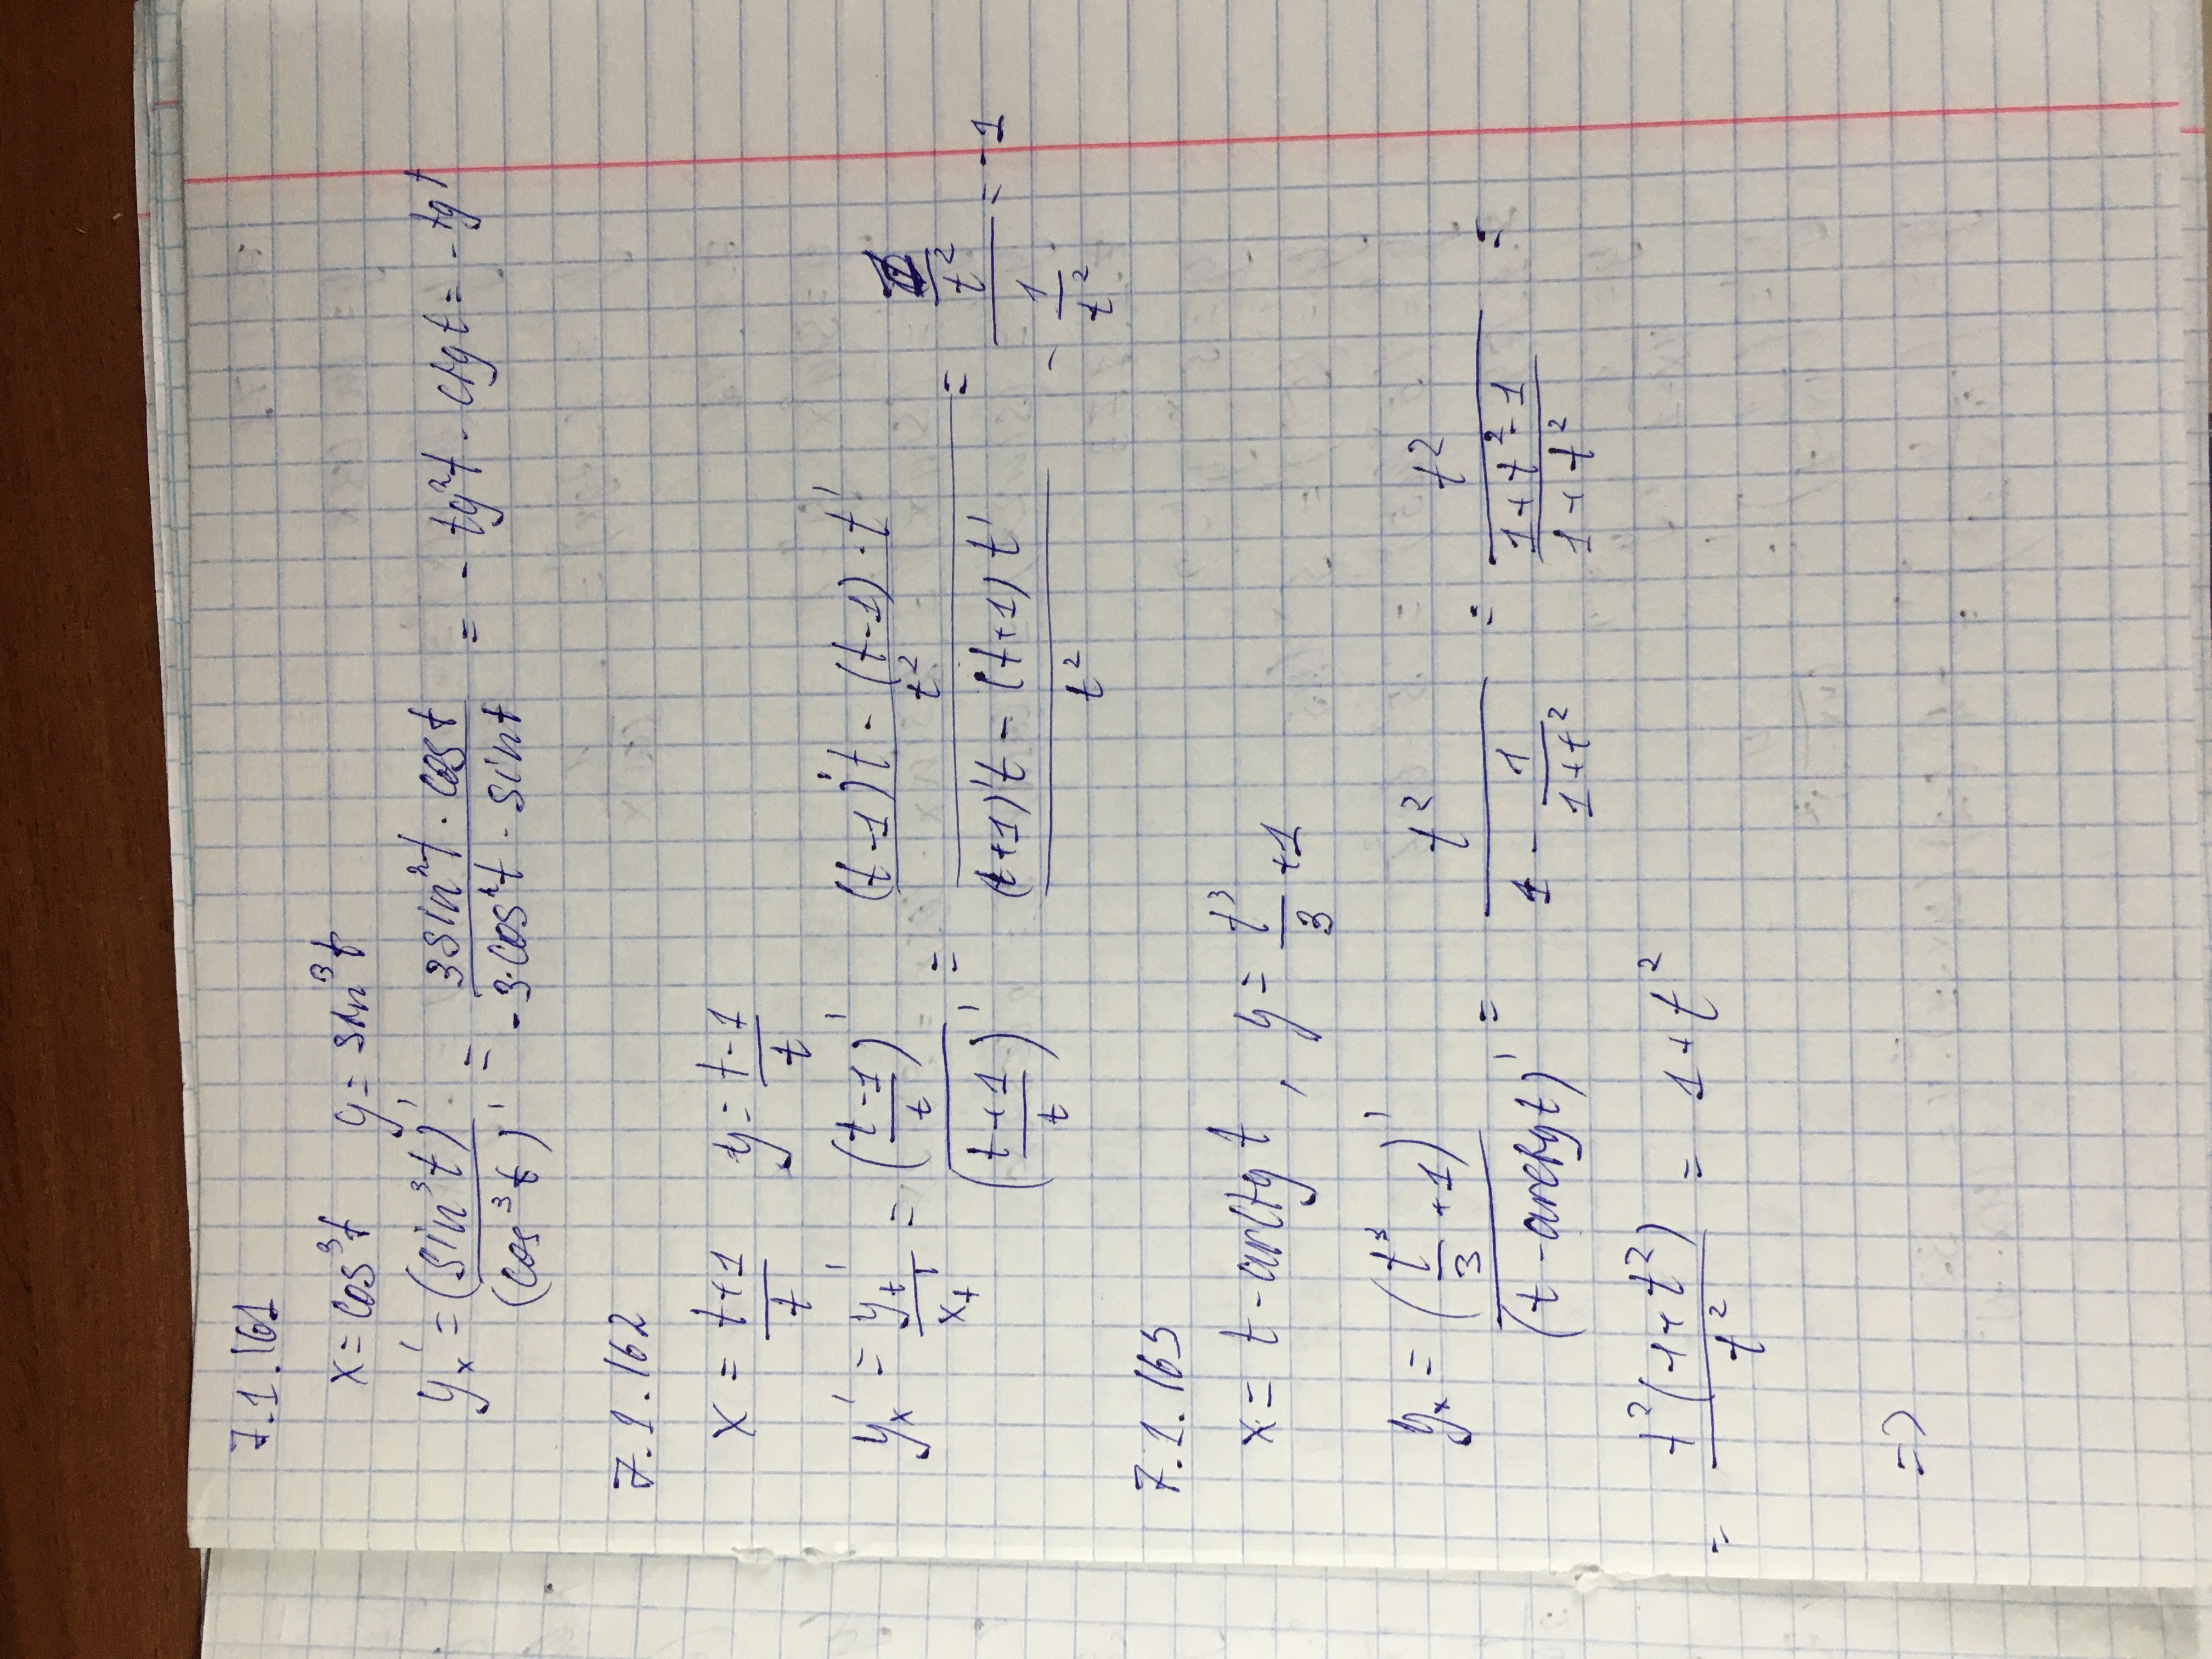 7.1.161
x = cos³t y = sin³t
y'ₓ = (sin³t)' / (cos³t)' = 3sin²t · cost / -3·cos²t · sint = - tg²t · ctgt = - tgt
7.1.162
x = t+1 / t y = t-1 / t
y'ₓ = y'ₜ / x'ₜ = (t-1 / t)' / (t+1 / t)' = (t-1)'t - (t-1)·t' / t² / (t+1)'t - (t+1)t' / t² = 1 / t² / - 1 / t² = -1
7.1.163
x = t - arctg t , y = t³ / 3 + 1
yₓ = (t³ / 3 + 1)' / (t - arctgt)' = t² / 1 - 1 / 1+t² = t² / 1+t²-1 / 1+t² =
= t²(1+t²) / t² = 1+t²
=>